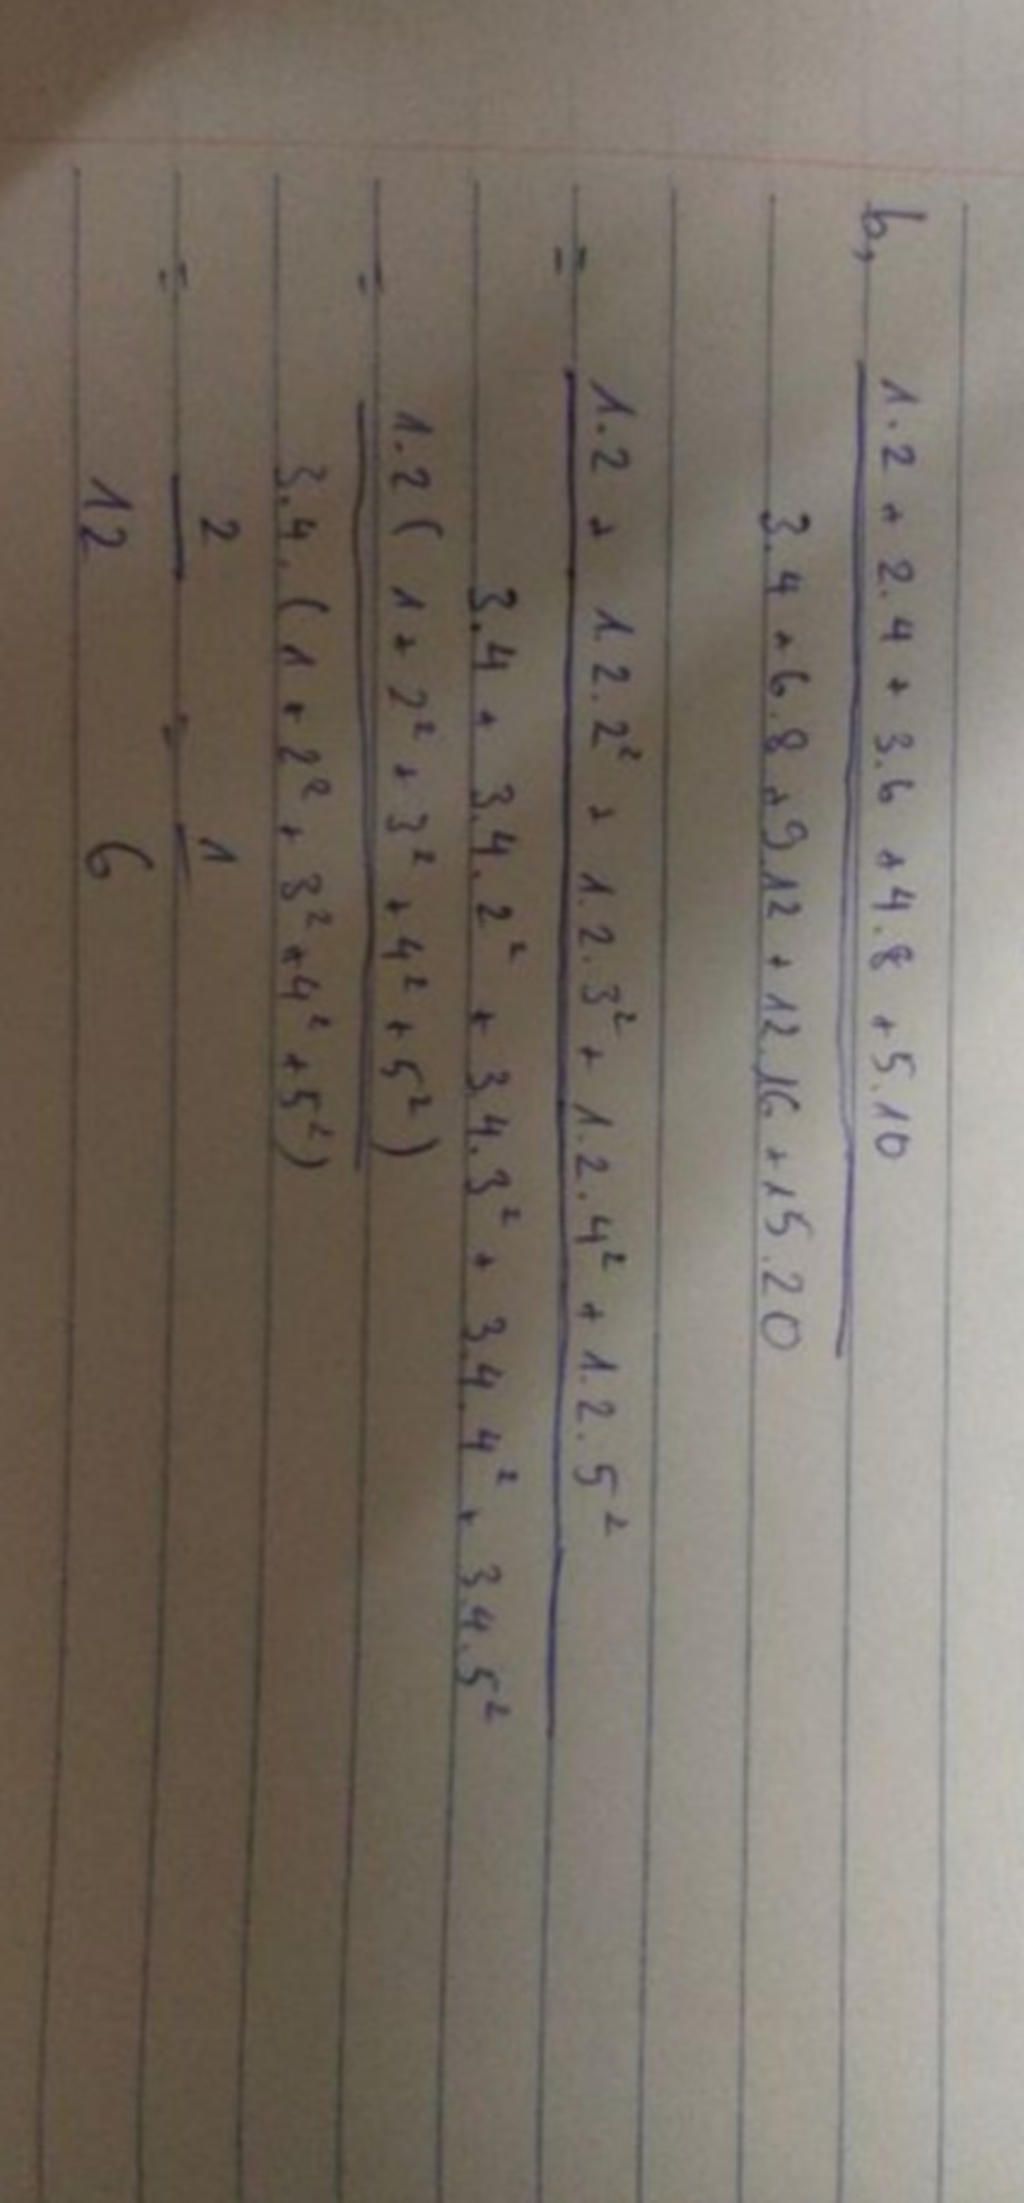 b, 1.2 + 2.4 + 3.6 + 4.8 + 5.10
3.4 + 6.8 + 9.12 + 12.16 + 15.20
= 1.2 + 1.2.2² + 1.2.3² + 1.2.4² + 1.2.5²
3.4 + 3.4.2² + 3.4.3² + 3.4.4² + 3.4.5²
= 1.2 ( 1 + 2² + 3² + 4² + 5² )
3.4. ( 1 + 2² + 3² + 4² + 5² )
= 2 = 1
12 6